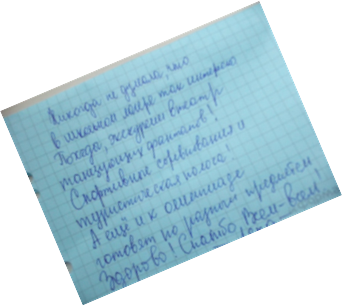 Никогда не думала, что
в школьном лагере так интересно
Погода, экскурсии в театр
танцующих фонтанов!
Спортивные соревнования и
туристическая полоса!
А ещё и к олимпиаде
готовят по разным предметам
Здорово! Спасибо Всем-Вам!